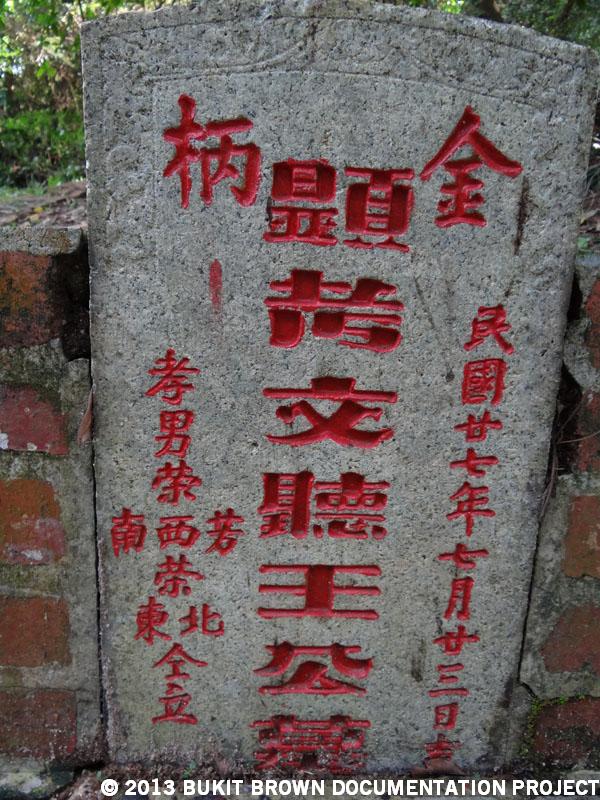 金柄
民國廿七年七月廿三日吉
顯考文聽王公墓
孝男榮
芳西南
榮
北東
仝立
© 2013 BUKIT BROWN DOCUMENTATION PROJECT